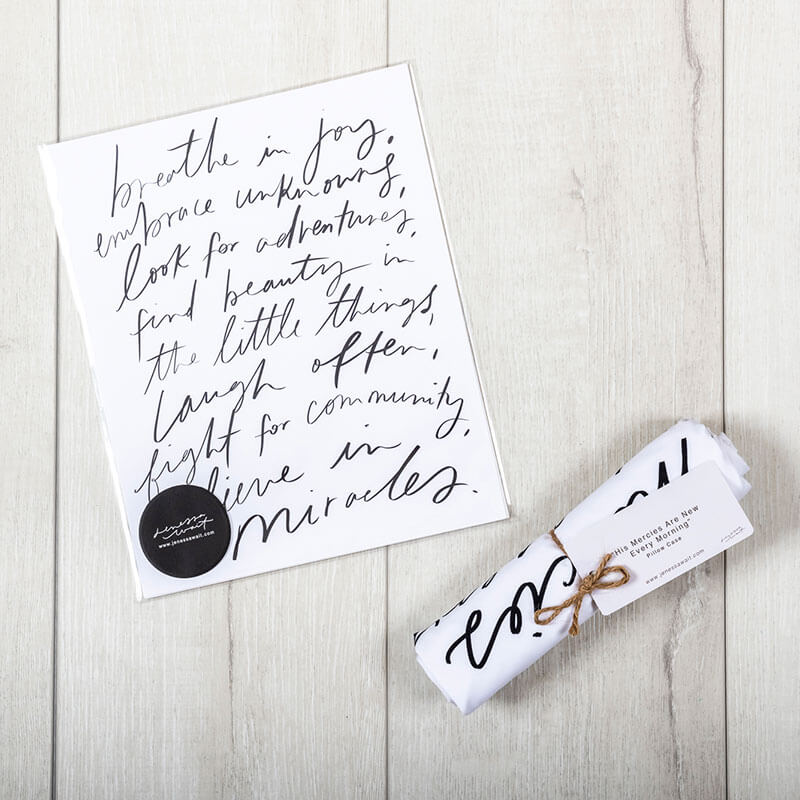 breathe in joy,
embrace unknowns,
look for adventures,
find beauty in
the little things,
laugh often,
fight for community,
lieve in
miracles.
jenessa
wait
www.jenessawait.com
"His Mercies Are New
Every Morning"
Pillow Case
www.jenessawait.com